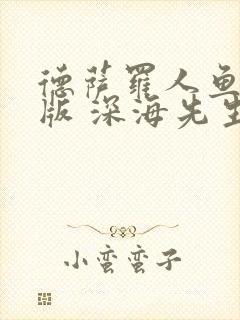 德萨罗人鱼
版 深海先生
小蛮蛮子